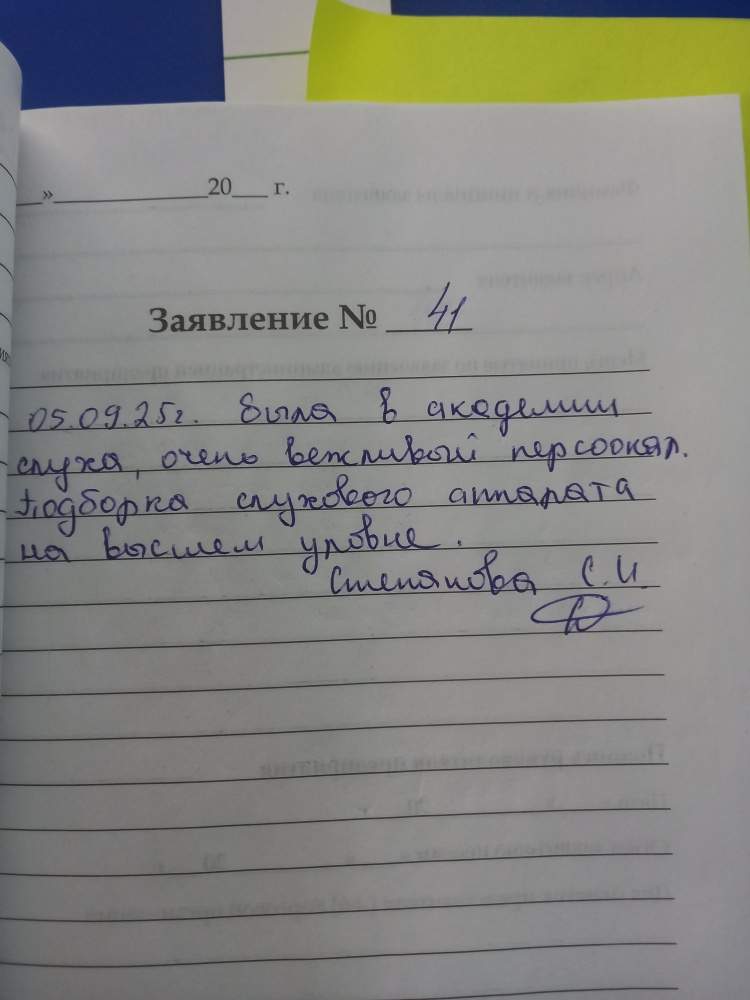 » 20 г.
Заявление № 41
05.09.25г. Была в академии
слуха, очень вежливый персоонал.
Подборка слухового аппарата
на высшем уровне.
Степанова С.И.